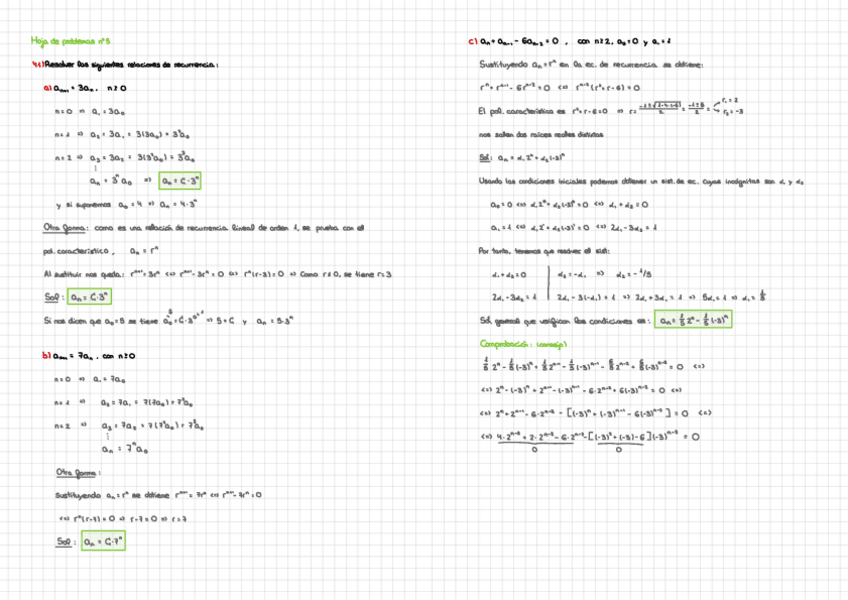 Hoja de problemas nº5
41) Resolver las siguientes relaciones de recurrencia:
a) aₙ₊₁ = 3aₙ, n≥0
n=0 ⇒ a₁ = 3a₀
n=1 ⇒ a₂ = 3a₁ = 3(3a₀) = 3²a₀
n=2 ⇒ a₃ = 3a₂ = 3(3²a₀) = 3³a₀
⋮
aₙ = 3ⁿa₀ ⇒ aₙ = C·3ⁿ
y si suponemos a₀ = 4 ⇒ aₙ = 4·3ⁿ
Otra forma: como es una relación de recurrencia lineal de orden 1, se prueba con el
pol. característico, aₙ = rⁿ
Al sustituir nos queda: rⁿ⁺¹=3rⁿ ⇔ rⁿ⁺¹-3rⁿ=0 ⇔ rⁿ(r-3)=0 ⇒ Como r≠0, se tiene r=3
Sol: aₙ = C·3ⁿ
Si nos dicen que a₀=5 se tiene ⇒ 5=C y aₙ = 5·3ⁿ
b) aₙ₊₁ = 7aₙ, con n≥0
n=0 ⇒ a₁ = 7a₀
n=1 ⇒ a₂ = 7a₁ = 7(7a₀) = 7²a₀
n=2 ⇒ a₃ = 7a₂ = 7(7²a₀) = 7³a₀
⋮
aₙ = 7ⁿa₀
Otra forma:
Sustituyendo aₙ = rⁿ se obtiene rⁿ⁺¹ = 7rⁿ ⇔ rⁿ⁺¹-7rⁿ=0
⇔ rⁿ(r-7)=0 ⇒ r-7=0 ⇒ r=7
Sol: aₙ = C·7ⁿ
c) aₙ + aₙ₋₁ - 6aₙ₋₂ = 0, con n≥2, a₀=0 y a₁=1
Sustituyendo aₙ = rⁿ en la ec. de recurrencia se obtiene:
rⁿ + rⁿ⁻¹ - 6rⁿ⁻² = 0 ⇔ rⁿ⁻²(r²+r-6) = 0
El pol. característico es r²+r-6=0 ⇒ r = = (-1±5)/2 = r₁=2 r₂=-3
nos salen dos raíces reales distintas
Sol: aₙ = α₁2ⁿ + α₂(-3)ⁿ
Usando las condiciones iniciales podemos obtener un sist. de ec. cuyas incógnitas son α₁ y α₂
a₀=0 ⇔ α₁2⁰ + α₂(-3)⁰ = 0 ⇔ α₁+α₂=0
a₁=1 ⇔ ⇔ 2α₁-3α₂=1
Por tanto, tenemos que resolver el sist:
α₁+α₂=0 | α₂=-α₁ ⇒ α₂ = -1/5
2α₁-3α₂=1 | 2α₁-3(-α₁)=1 ⇒ 2α₁+3α₁=1 ⇒ 5α₁=1 ⇒ α₁=1/5
Sol. general que verifican las condiciones es: aₙ = 1/5 2ⁿ - 1/5 (-3)ⁿ
Comprobación: (consejo)
1/5 2ⁿ - 1/5(-3)ⁿ + 1/5 2ⁿ⁻¹ - 1/5(-3)ⁿ⁻¹ - 6/5 2ⁿ⁻² + 6/5(-3)ⁿ⁻² = 0 ⇔
⇔ 2ⁿ - (-3)ⁿ + 2ⁿ⁻¹ - (-3)ⁿ⁻¹ - 6·2ⁿ⁻² + 6(-3)ⁿ⁻² = 0 ⇔
⇔ 2ⁿ + 2ⁿ⁻¹ - 6·2ⁿ⁻² - [(-3)ⁿ + (-3)ⁿ⁻¹ - 6(-3)ⁿ⁻²] = 0 ⇔
⇔ 4·2ⁿ⁻² + 2·2ⁿ⁻² - 6·2ⁿ⁻² - [(-3)²+(-3)-6](-3)ⁿ⁻² = 0
0 0